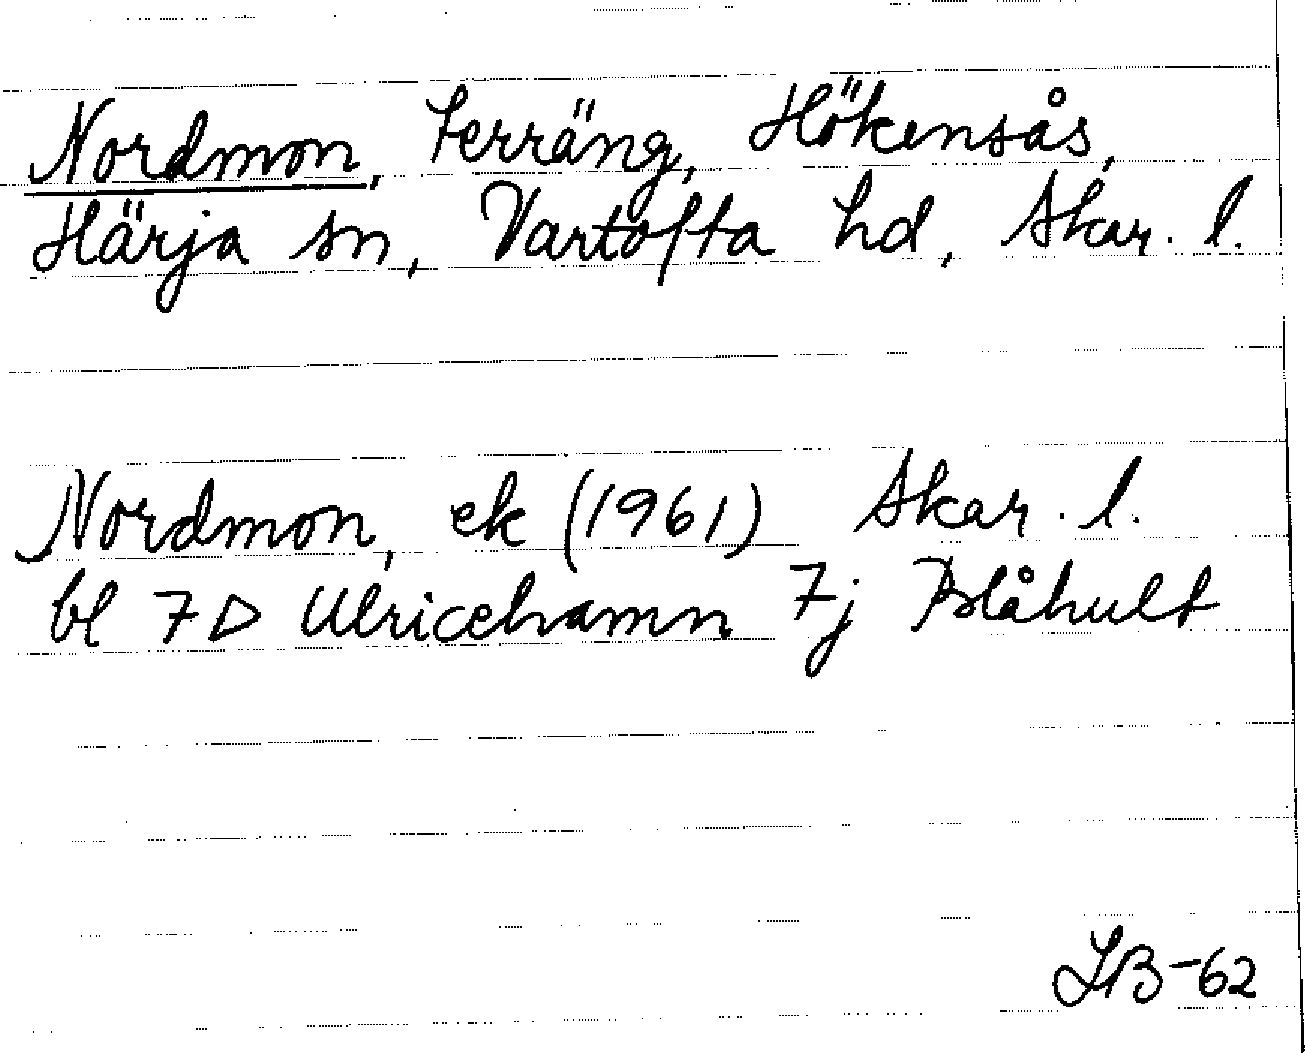 Nordmon, Terräng, Hökensås,
Härja sn, Vartofta hd, Skar. l.
Nordmon, ek (1961) Skar. l.
bl 7D Ulricehamn 7j Blåhult
LB-62